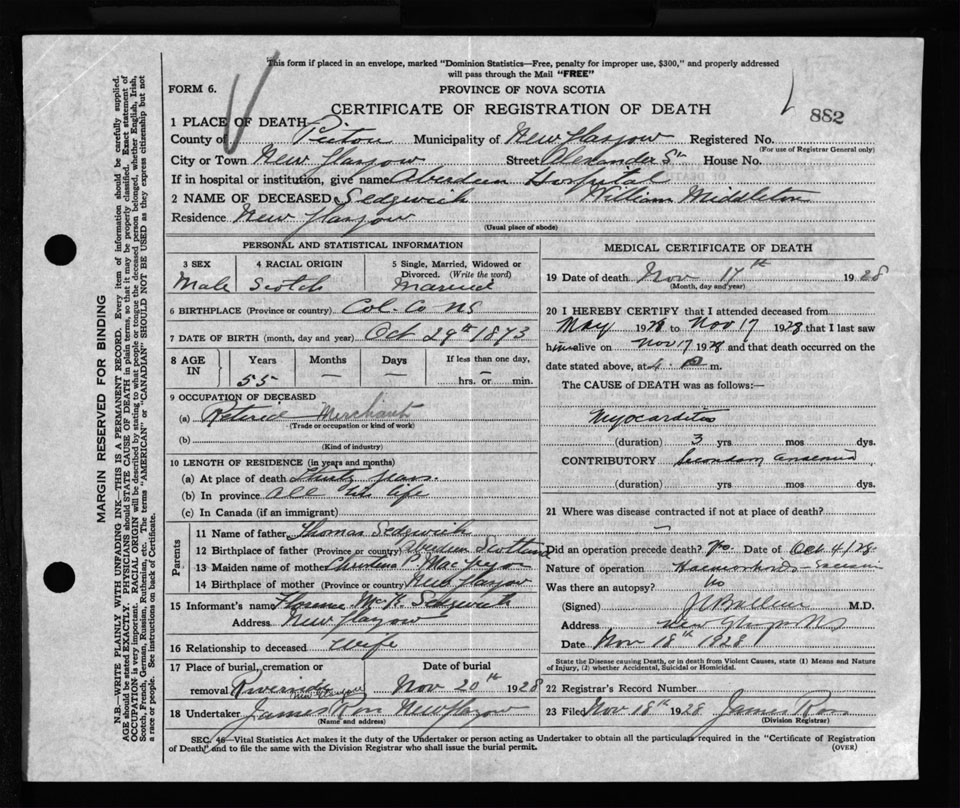 This form if placed in an envelope, marked "Dominion Statistics—Free, penalty for improper use, $300," and properly addressed
will pass through the Mail "FREE"
FORM 6.
PROVINCE OF NOVA SCOTIA
CERTIFICATE OF REGISTRATION OF DEATH
882
1 PLACE OF DEATH
County of Pictou Municipality of New Glasgow Registered No.
(For use of Registrar General only)
City or Town New Glasgow Street House No.
If in hospital or institution, give name Aberdeen Hospital
2 NAME OF DECEASED Sedgwick William Middleton
Residence New Glasgow
(Usual place of abode)
PERSONAL AND STATISTICAL INFORMATION
3 SEX 4 RACIAL ORIGIN 5 Single, Married, Widowed or
Divorced. (Write the word)
Male Scotch Married
6 BIRTHPLACE (Province or country) Col. Co NS
7 DATE OF BIRTH (month, day and year) Oct 29th 1873
8 AGE IN Years Months Days If less than one day,
55 — — — hrs. or min.
9 OCCUPATION OF DECEASED
(a) Retired Merchant
(Trade or occupation or kind of work)
(b)
(Kind of industry)
10 LENGTH OF RESIDENCE (in years and months)
(a) At place of death Thirty years.
(b) In province All his life
(c) In Canada (if an immigrant)
Parents
11 Name of father Thomas Sedgwick
12 Birthplace of father (Province or country) Aberdeen Scotland
13 Maiden name of mother MacGregor
14 Birthplace of mother (Province or country) New Glasgow
15 Informant's name Florence Sedgwick
Address New Glasgow
16 Relationship to deceased wife
17 Place of burial, cremation or Date of burial
removal Riverside Nov 20th 1928
18 Undertaker James Ross New Glasgow
(Name and address)
MEDICAL CERTIFICATE OF DEATH
19 Date of death Nov 17th 1928
(Month, day and year)
20 I HEREBY CERTIFY that I attended deceased from
May 1928 to Nov 17 1928 that I last saw
him alive on Nov 17 1928 and that death occurred on the
date stated above, at 4 P m.
The CAUSE of DEATH was as follows:—
Myocarditis
(duration) 3 yrs mos dys.
CONTRIBUTORY Secondary anaemia
(duration) yrs mos dys.
21 Where was disease contracted if not at place of death?
—
Did an operation precede death? Yes. Date of Oct 4/28
Nature of operation Haemorrhoids
Was there an autopsy? No
(Signed) M.D.
Address New Glasgow NS
Date Nov 18th 1928
State the Disease causing Death, or in death from Violent Causes, state (1) Means and Nature
of Injury, (2) whether Accidental, Suicidal or Homicidal.
22 Registrar's Record Number
23 Filed Nov 18th 1928 James Ross
(Division Registrar)
SEC. 46—Vital Statistics Act makes it the duty of the Undertaker or person acting as Undertaker to obtain all the particulars required in the "Certificate of Registration
of Death," and to file the same with the Division Registrar who shall issue the burial permit. (OVER)
MARGIN RESERVED FOR BINDING
N.B.—WRITE PLAINLY WITH UNFADING INK—THIS IS A PERMANENT RECORD. Every item of information should be carefully supplied.
AGE should be stated EXACTLY. PHYSICIANS should STATE CAUSE OF DEATH in plain terms, so that it may be properly classified. Exact statement of
OCCUPATION is very important. RACIAL ORIGIN will be described by stating to what people or tongue the deceased person belonged, whether English, Irish,
Scotch, French, German, Russian, Ruthenian, etc. The terms "AMERICAN" or "CANADIAN" SHOULD NOT BE USED as they express citizenship but not
a race or people. See instructions on back of Certificate.